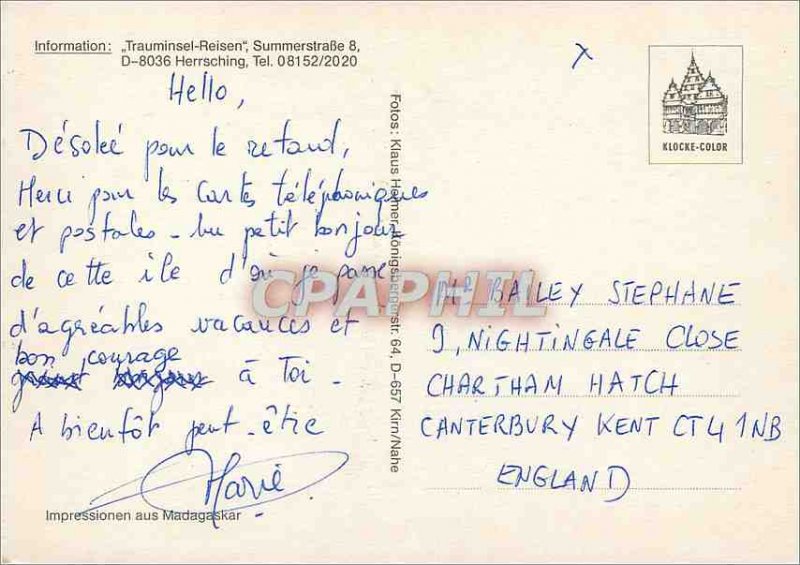 Information: „Trauminsel-Reisen“, Summerstraße 8,
D-8036 Herrsching, Tel. 08152/2020
Hello,
Désolée pour le retard,
Merci pour les cartes téléphoniques
et postales - Un petit bonjour
de cette île d'où je passe
d'agréables vacances et
bon courage
à Toi -
A bientôt peut-être
Marie
Impressionen aus Madagaskar
Fotos: Klaus Heimer, Königsbergerstr. 64, D-657 Kirn/Nahe
KLOCKE-COLOR
x
Mr BAILEY STEPHANE
9, NIGHTINGALE CLOSE
CHARTHAM HATCH
CANTERBURY KENT CT4 1NB
ENGLAND
CPAPHIL